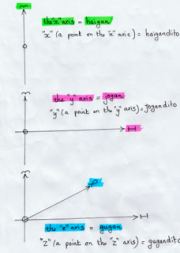 the "x" axis = haigan
"x" (a point on the "x" axis) = haigandito
the "y" axis = jagan
"y" (a point on the "y" axis) = jagandito
the "z" axis = gagan
"z" (a point on the "z" axis) = gagandito